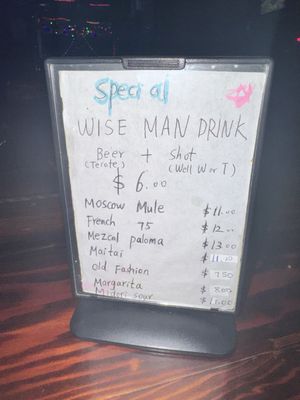 Special
WISE MAN DRINK
Beer + Shot
(Tecate) (Well W or T)
$6.00
Moscow Mule $11.00
French 75 $12.00
Mezcal paloma $13.00
Maitai $11.00
Old Fashion $7.50
Margarita $8.00
Midori sour $11.00